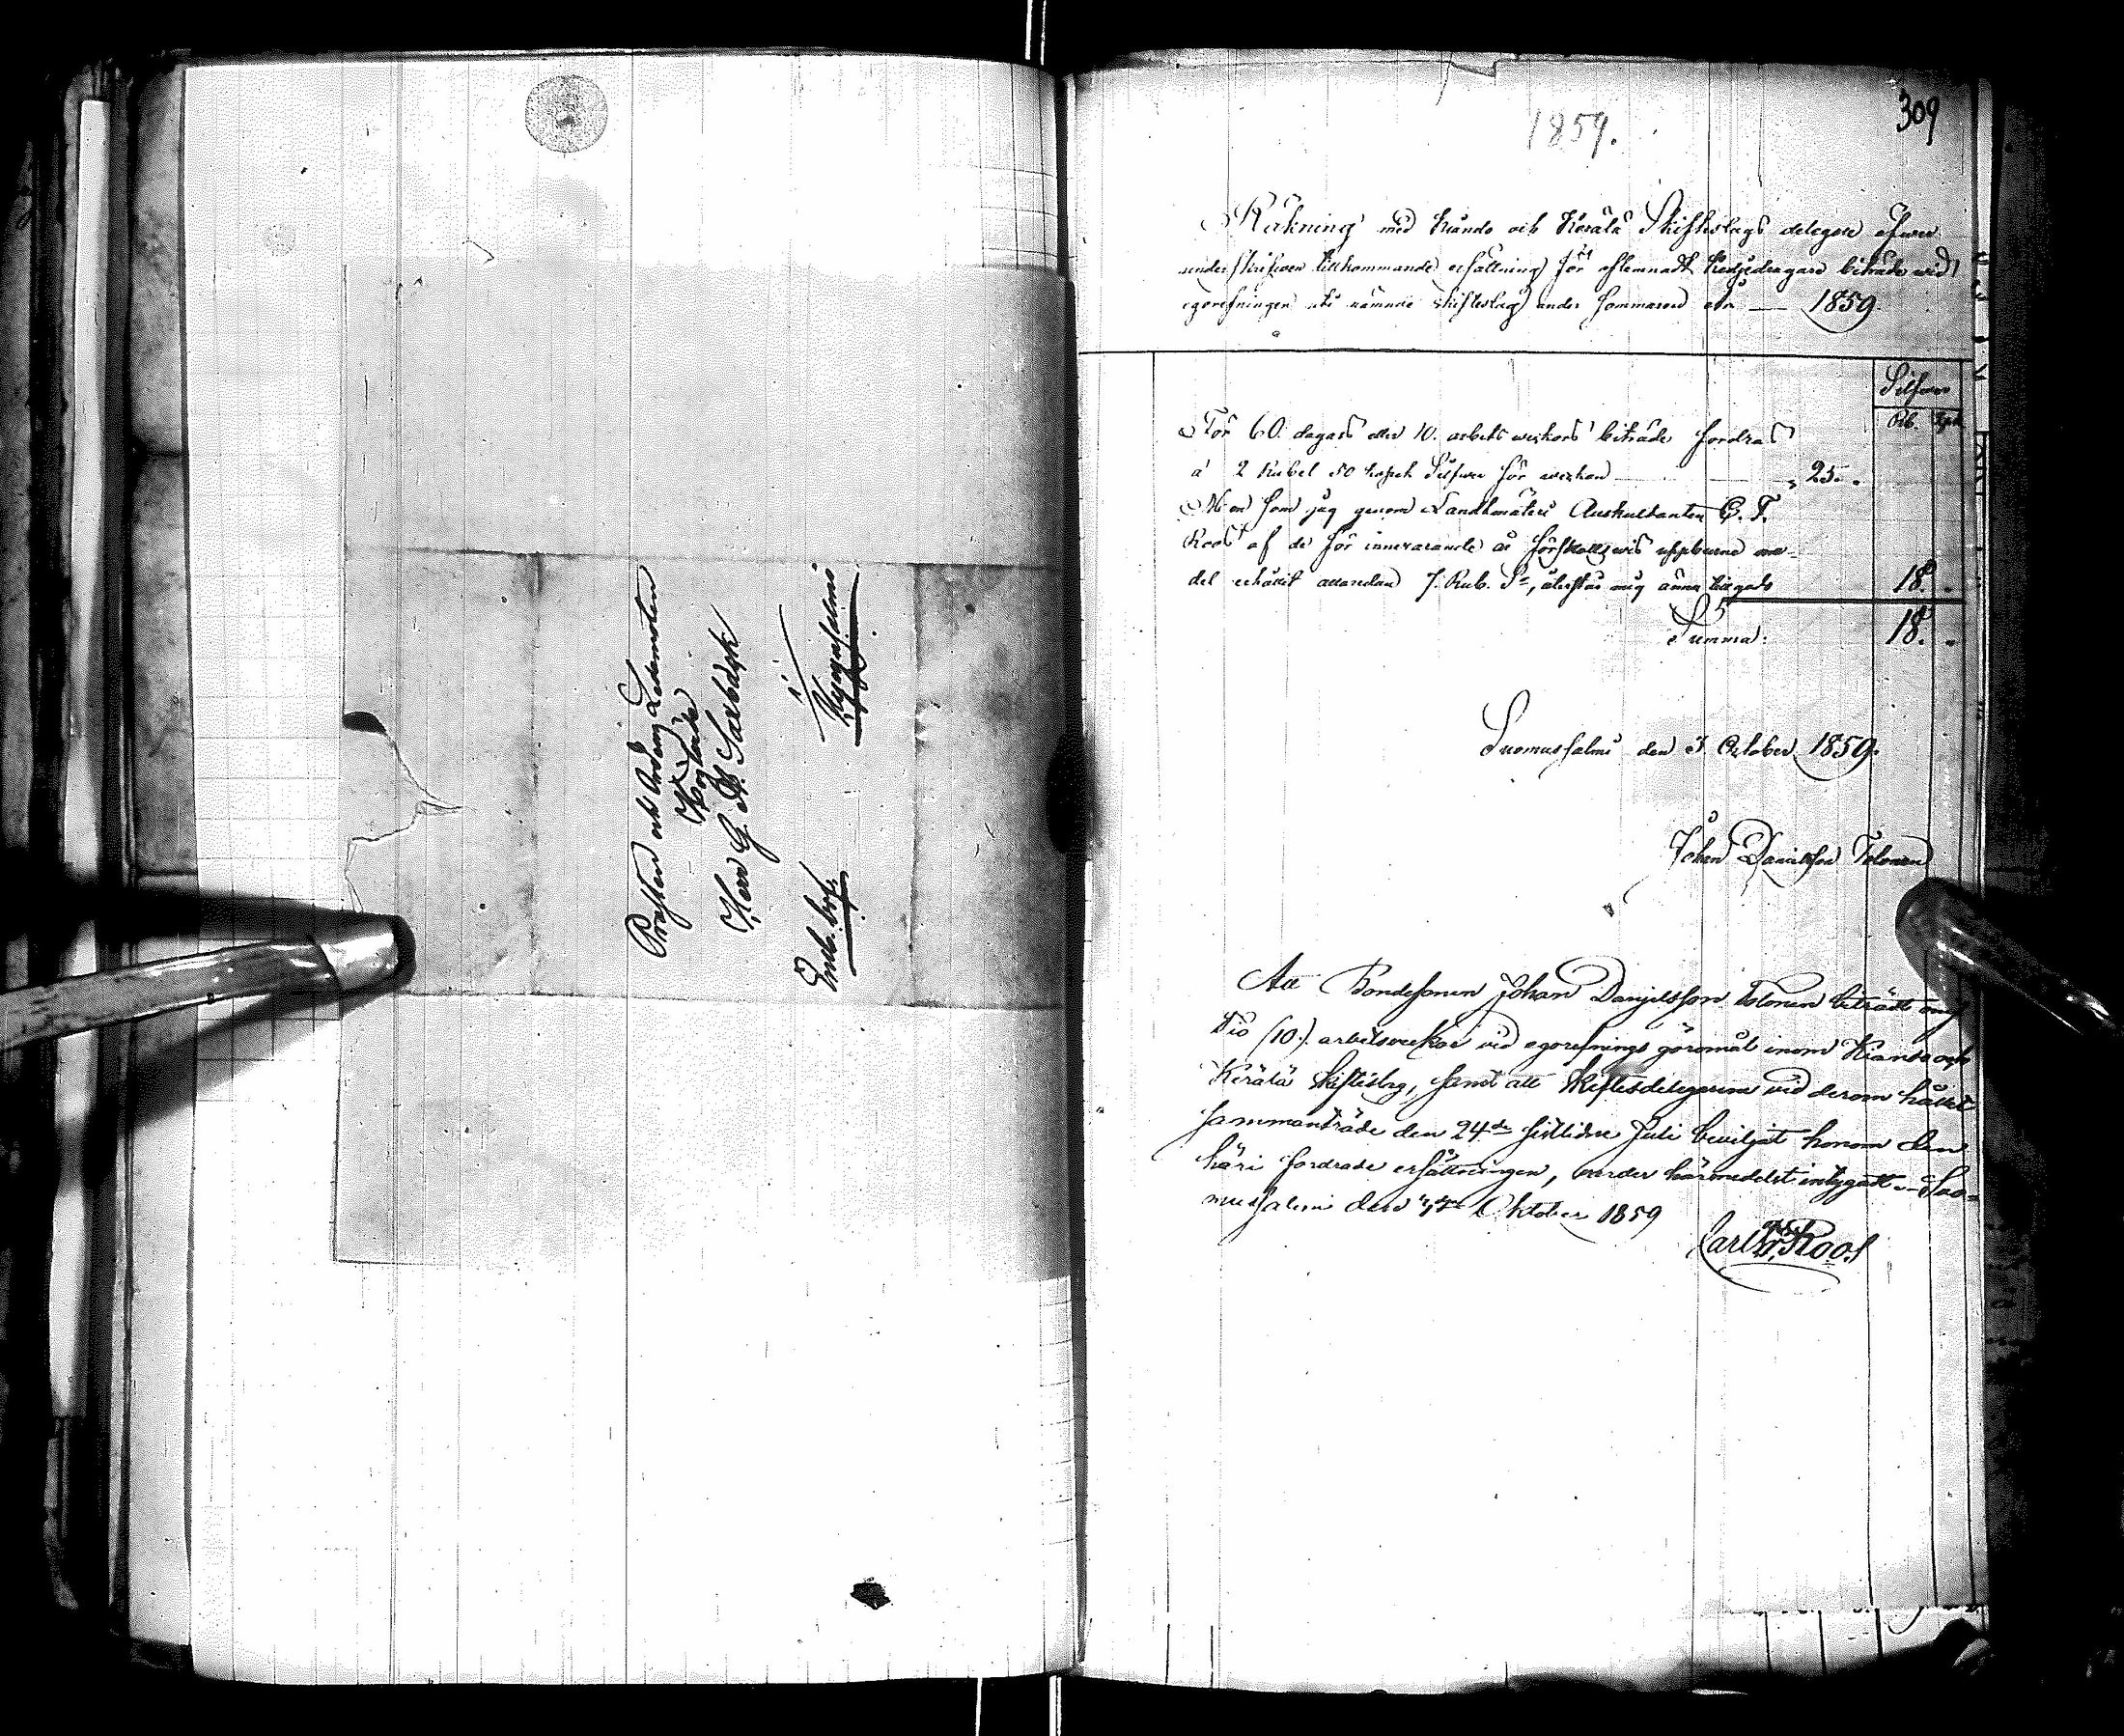 Prosten och Ordens Ledamoten
Höglärde
Herr G. A. Saxbäck
i
Hyrynsalmi
Emb. bref.
309
1859.
Räkning med Kiando och Kerälä Skifteslags delegare öfwer
underskrifwen tillkommande ersättning för åtlemnadt kedjedragare biträde wid
egorefningen uti nämnde skifteslag under sommaren år — 1859.
Silfwer
Rub. Kop.
För 60. dagars eller 10. arbets weckors biträde fordras
à 2 Rubel 50 kopek Silfwer för weckan — „ 25. „
Men som jag genom Landtmäteri Auskultanten C. F.
Roos af de för innewarande år förskottswis uppburne me-
del erhållit allaredan 7. Rub. Sr, återstår mig ännu tillgodo 18. „
Summa: 18. „
Suomussalmi den 3 October 1859.
Johan Danielsson Tolonen
Att Bondesonen Johan Danjelsson Tolonen biträdt mig
Tio (10.) arbetsveckor vid egorefnings göromål inom Kianto och
Kerälä Skifteslag, samt att Skiftesdelegarene vid derom hållet
sammanträde den 24de sistlidne Juli beviljat honom den
häri fordrade ersättningen, varder härmedelst intygadt. Suo-
mussalmi den 4de Oktober 1859
Carl Fr. Roos